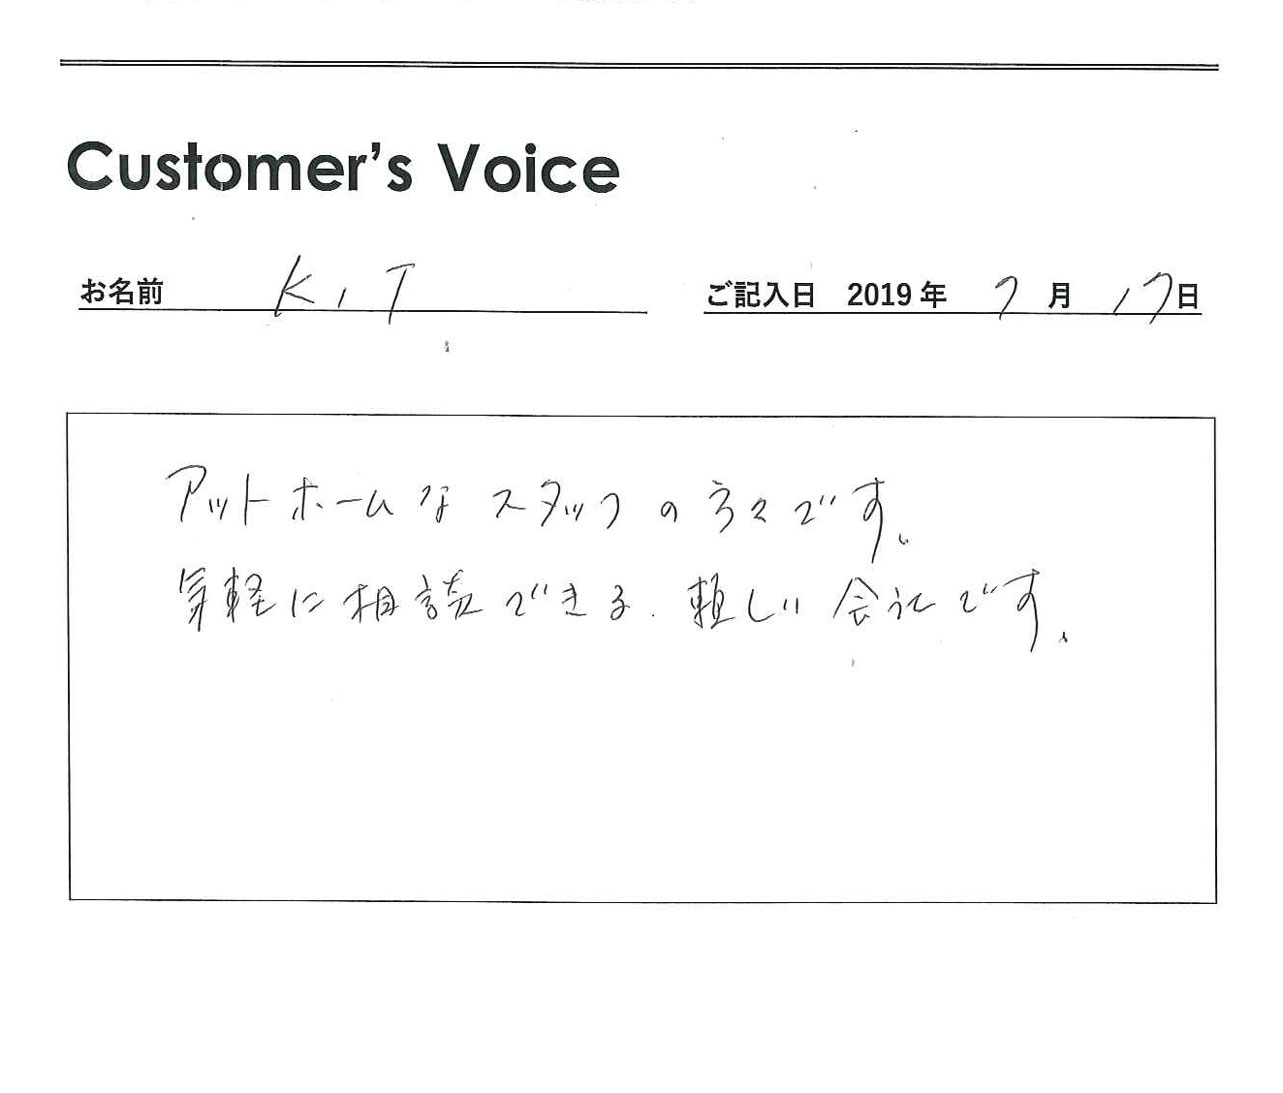 Customer's Voice
お名前 K,T ご記入日 2019年 7月 17日
アットホームなスタッフの方々です。
気軽に相談できる、頼しい会社です。